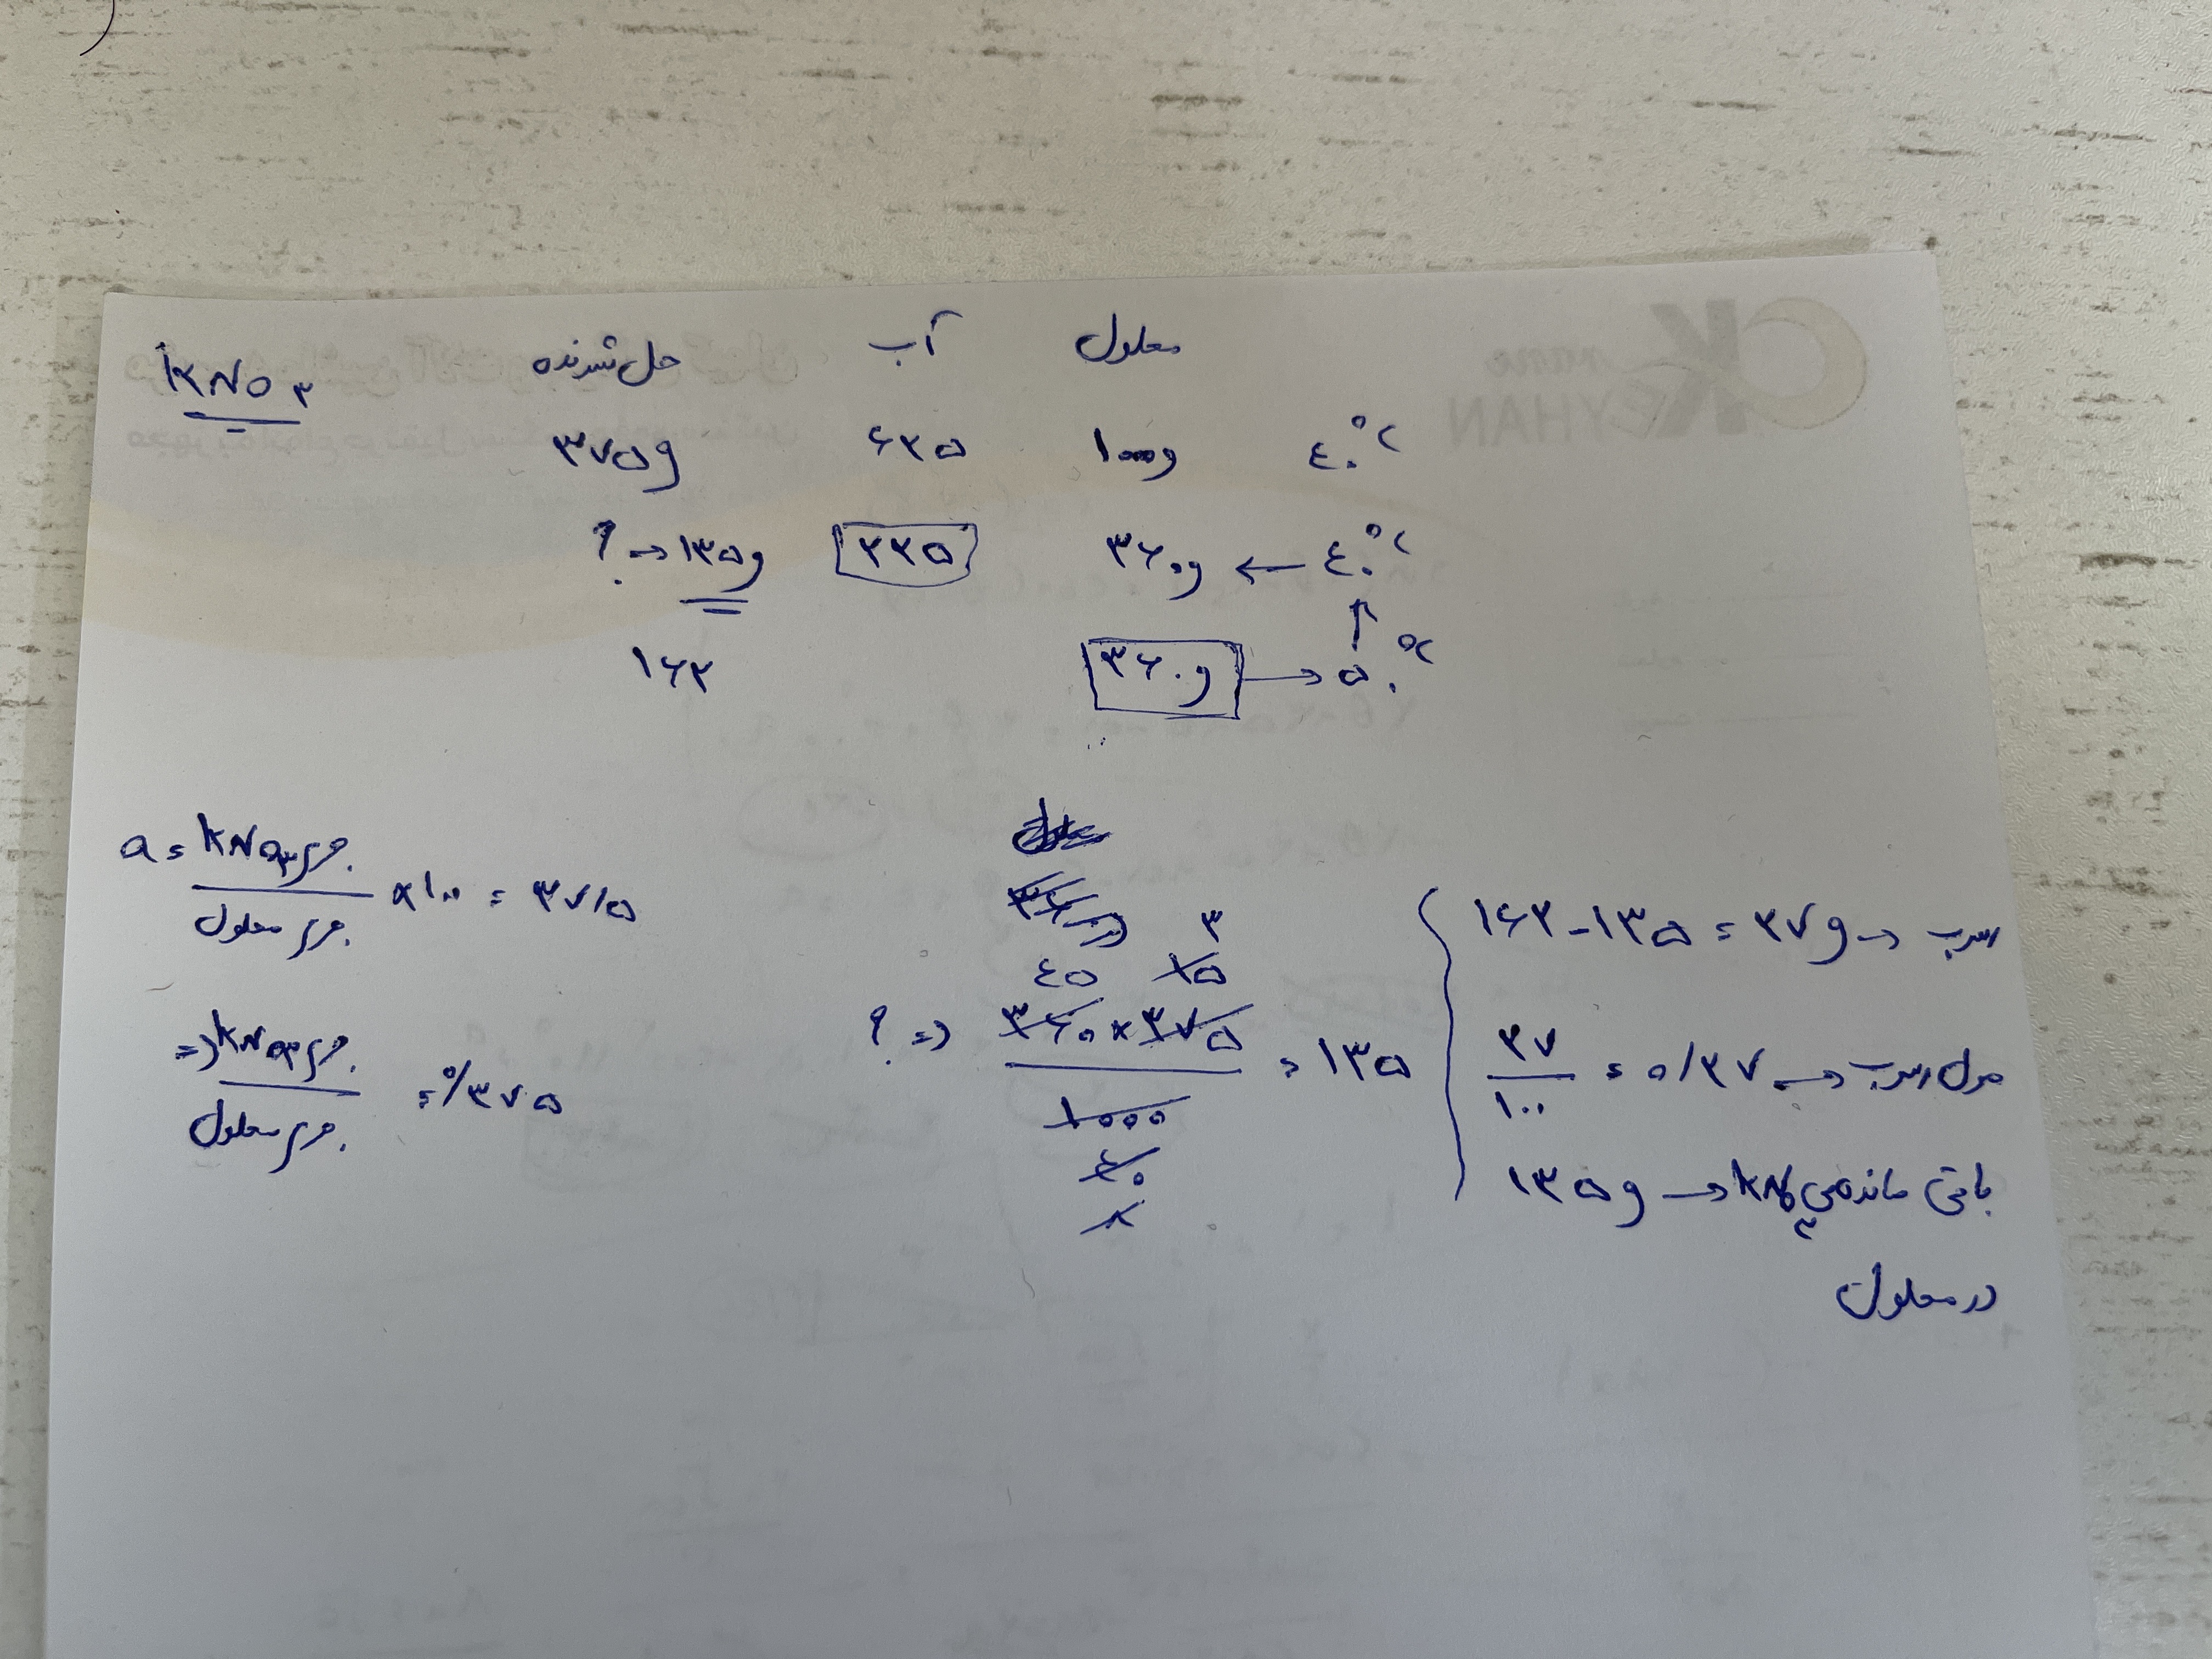 محلول آب حل شونده KNO۳
۴۰°C ۱۰۰۰g ۶۲۵ ۳۷۵g
۴۰°C → ۳۶۰g ۲۲۵ ۱۳۵g → ?
۵۰°C ← ۳۶۰g ۱۶۲
a = جرم KNO۳ / جرم محلول × ۱۰۰ = ۳۷/۵
⇒ جرم KNO۳ / جرم محلول = ۰/۳۷۵
۴۵ ۱۵ ۳
? ⇒ ۳۶۰ × ۳۷۵ / ۱۰۰۰ = ۱۳۵
۴۰
۸
رسوب ← ۱۶۲ - ۱۳۵ = ۲۷g
مول رسوب ← ۲۷ / ۱۰۰ = ۰/۲۷
باقی مانده‌ی KNO۳ ← ۱۳۵g
در محلول
KEYHAN